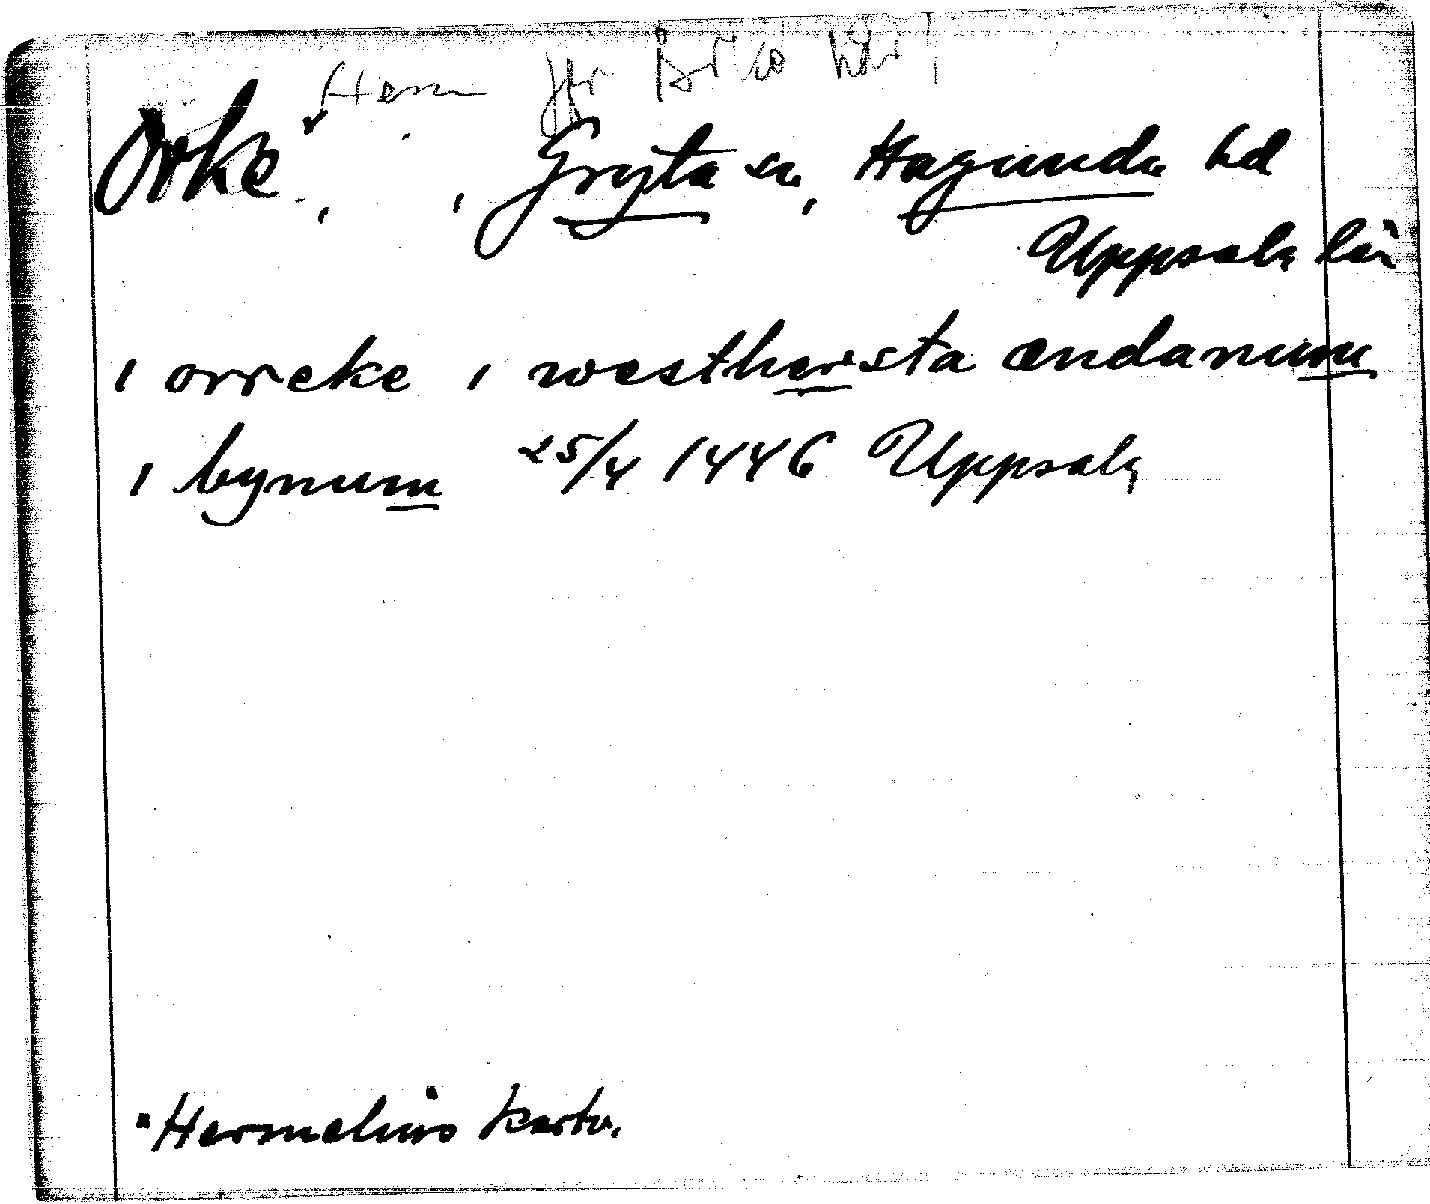 Hem jfr
Örke, , Gryta sn, Hagunda hd
Uppsala län
i orreke i westhersta ændanum
i bynum 25/4 1446 Uppsala
"Hermelins karta.